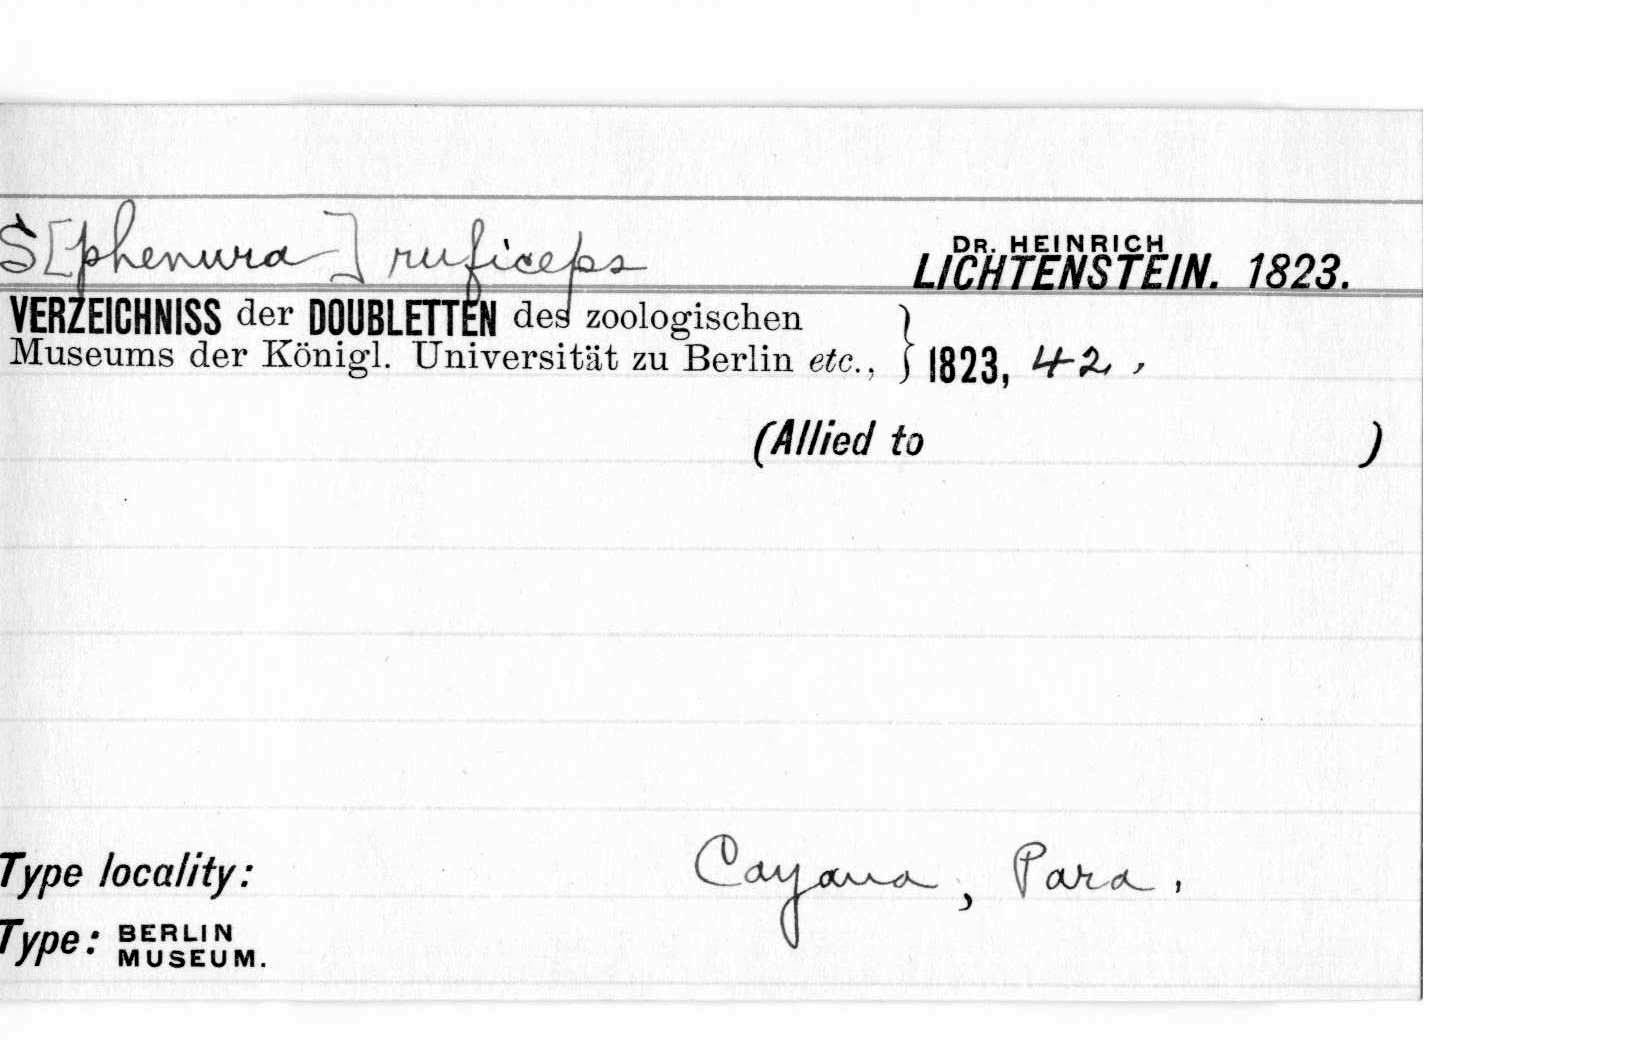 S[phenura] ruficeps
DR. HEINRICH
LICHTENSTEIN. 1823.
VERZEICHNISS der DOUBLETTEN des zoologischen
Museums der Königl. Universität zu Berlin etc., } 1823, 42.
(Allied to )
Type locality: Cayana, Para.
Type: BERLIN
MUSEUM.